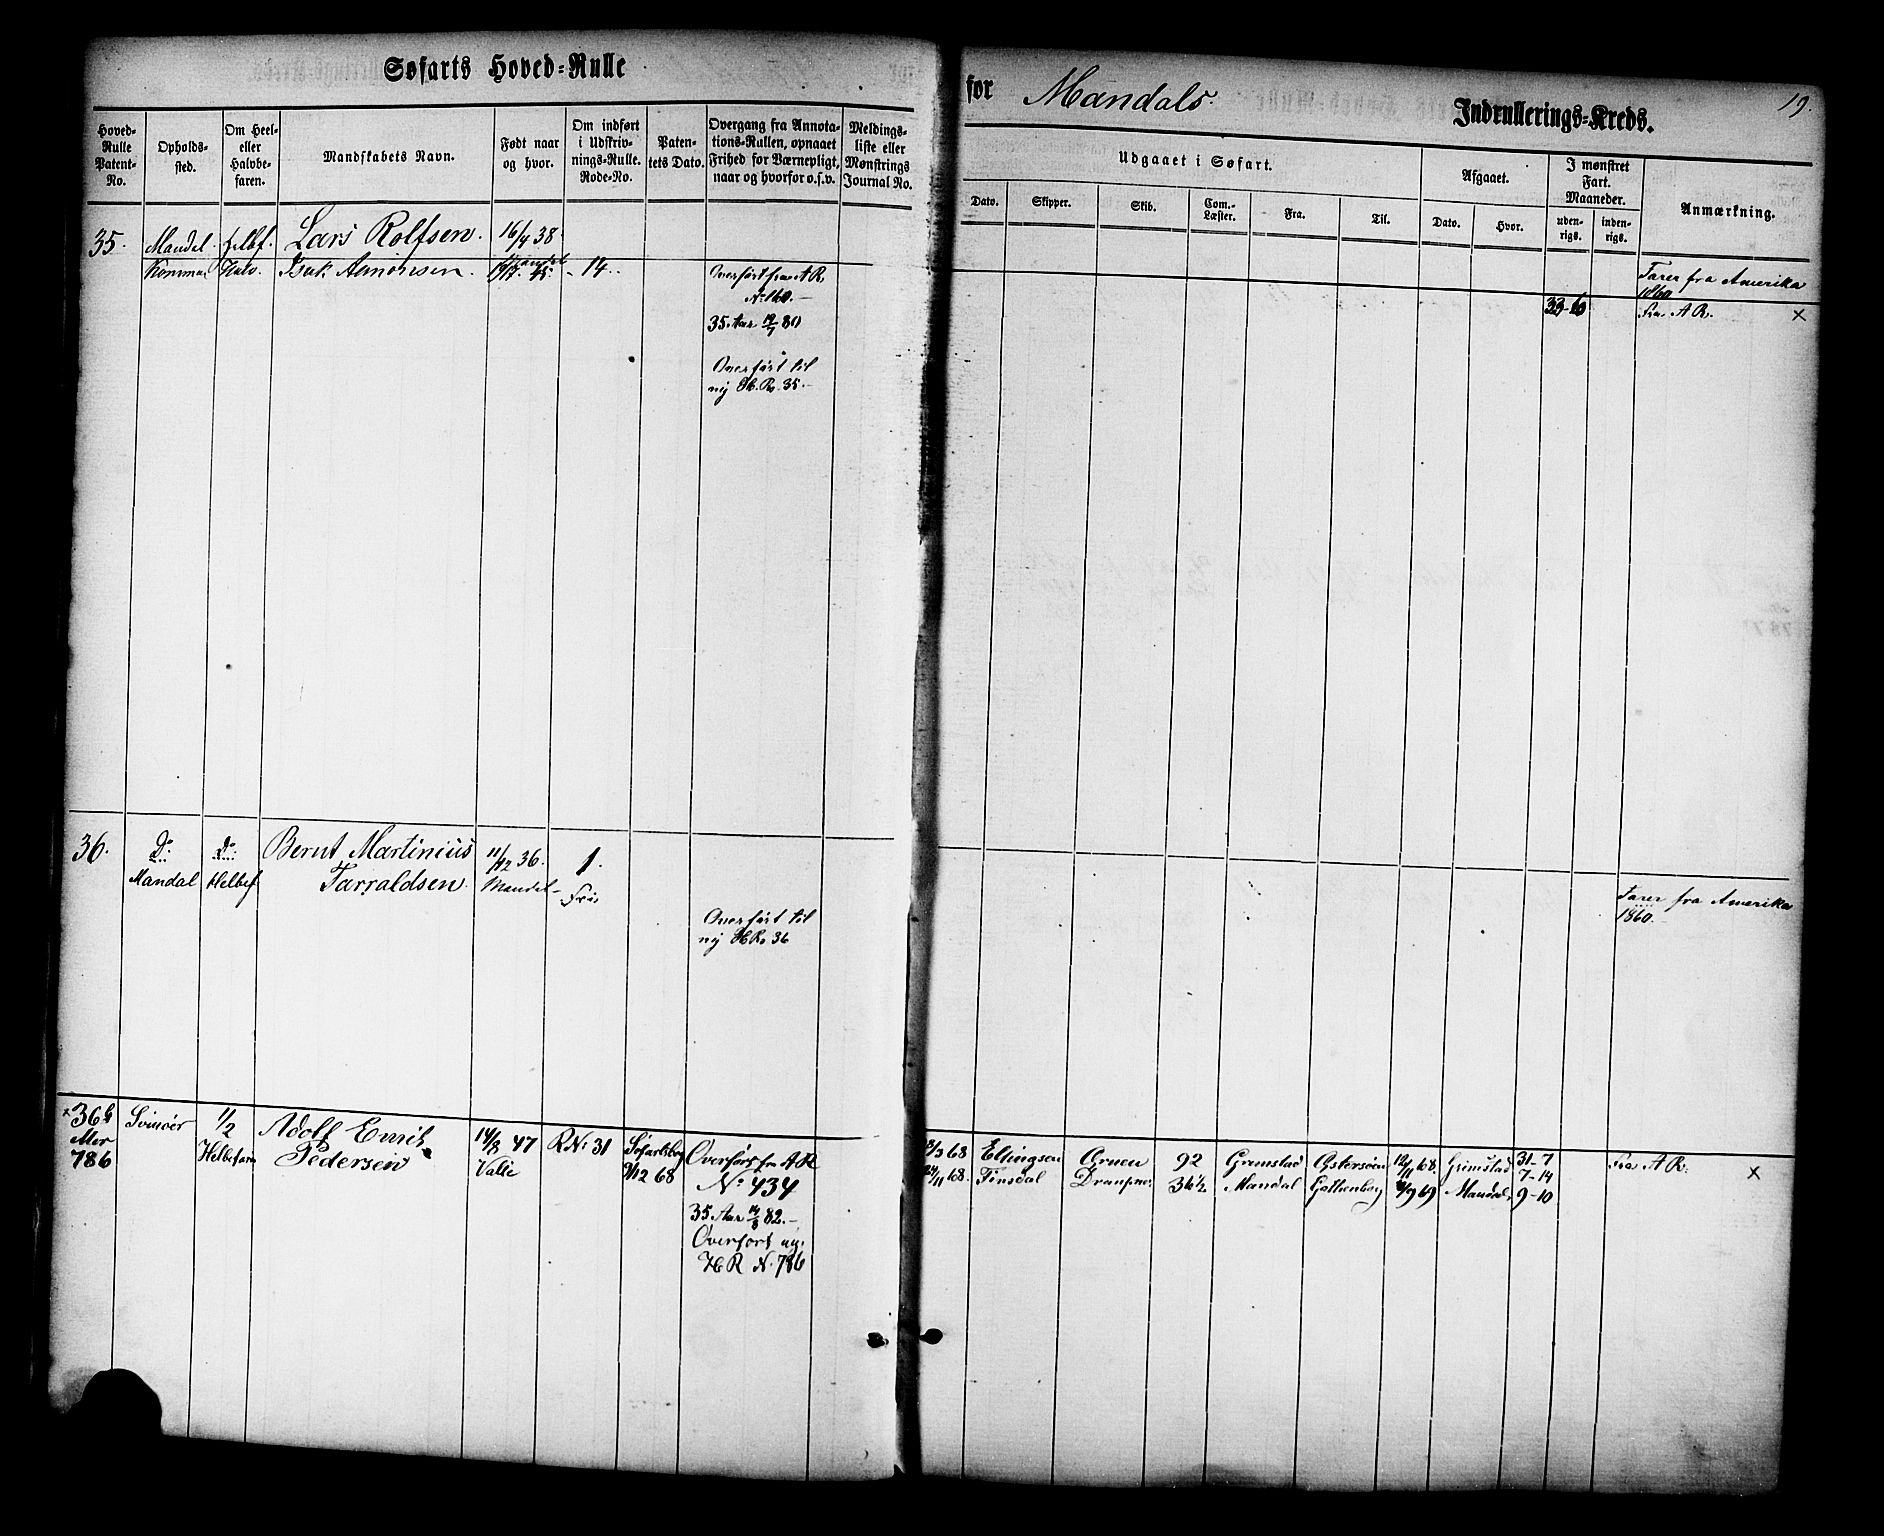 Søfarts Hoved-Rulle
for Mandals Indrullerings-Kreds.
19.
Hoved-Rulle Patent-No.
Opholds-sted.
Om Heel- eller Halvbe-faren.
Mandskabets Navn.
Født naar og hvor.
Om indført i Udskriv-nings-Rulle. Rode-No.
Paten-tets Dato.
Overgang fra Annota-tions-Rullen, opnaaet Frihed for Værnepligt, naar og hvorfor o.s.v.
Meldings-liste eller Mønstrings Journal No.
Udgaaet i Søfart.
Dato.
Skipper.
Skib.
Com.-Læster.
Fra.
Til.
Afgaaet.
Dato.
Hvor.
I mønstret Fart. Maaneder.
uden-rigs.
inden-rigs.
Anmærkning.
35. Mandal. Lars Rolfsen. 16/4 38.
Farer fra Amerika
1860
Halv. Isak 14.
Overført fra A R.
No 160.
35 Aar 19/7 80
Overført til
ny H. R. 35.
33-6
Fra A R. ×
36. Do: Do: Bernt Martinius 11/12 36. 1.
Mandal Helbef Tarraldsen. Mandal Fri
Overført til
ny H R. 36
Farer fra Amerika
1860.
× 36 b Svinøer 1/2 Adolf Emil 14/8 47 R No 31
Mer Helbefaren Pedersen Valle
786 9/12 68
Overført fra A R
No 434
35 Aar 14/8 82.
Overført ny.
H R N. 786
68 Ellingsen Ørnen 92 Grimstad Østersøen 12/11 68. Grimstad 31-7 Fra A R. ×
24/11 68. Tinsdal Draupner 36 1/2 Mandal Gothenborg 69 Mandal 7-14
9-10